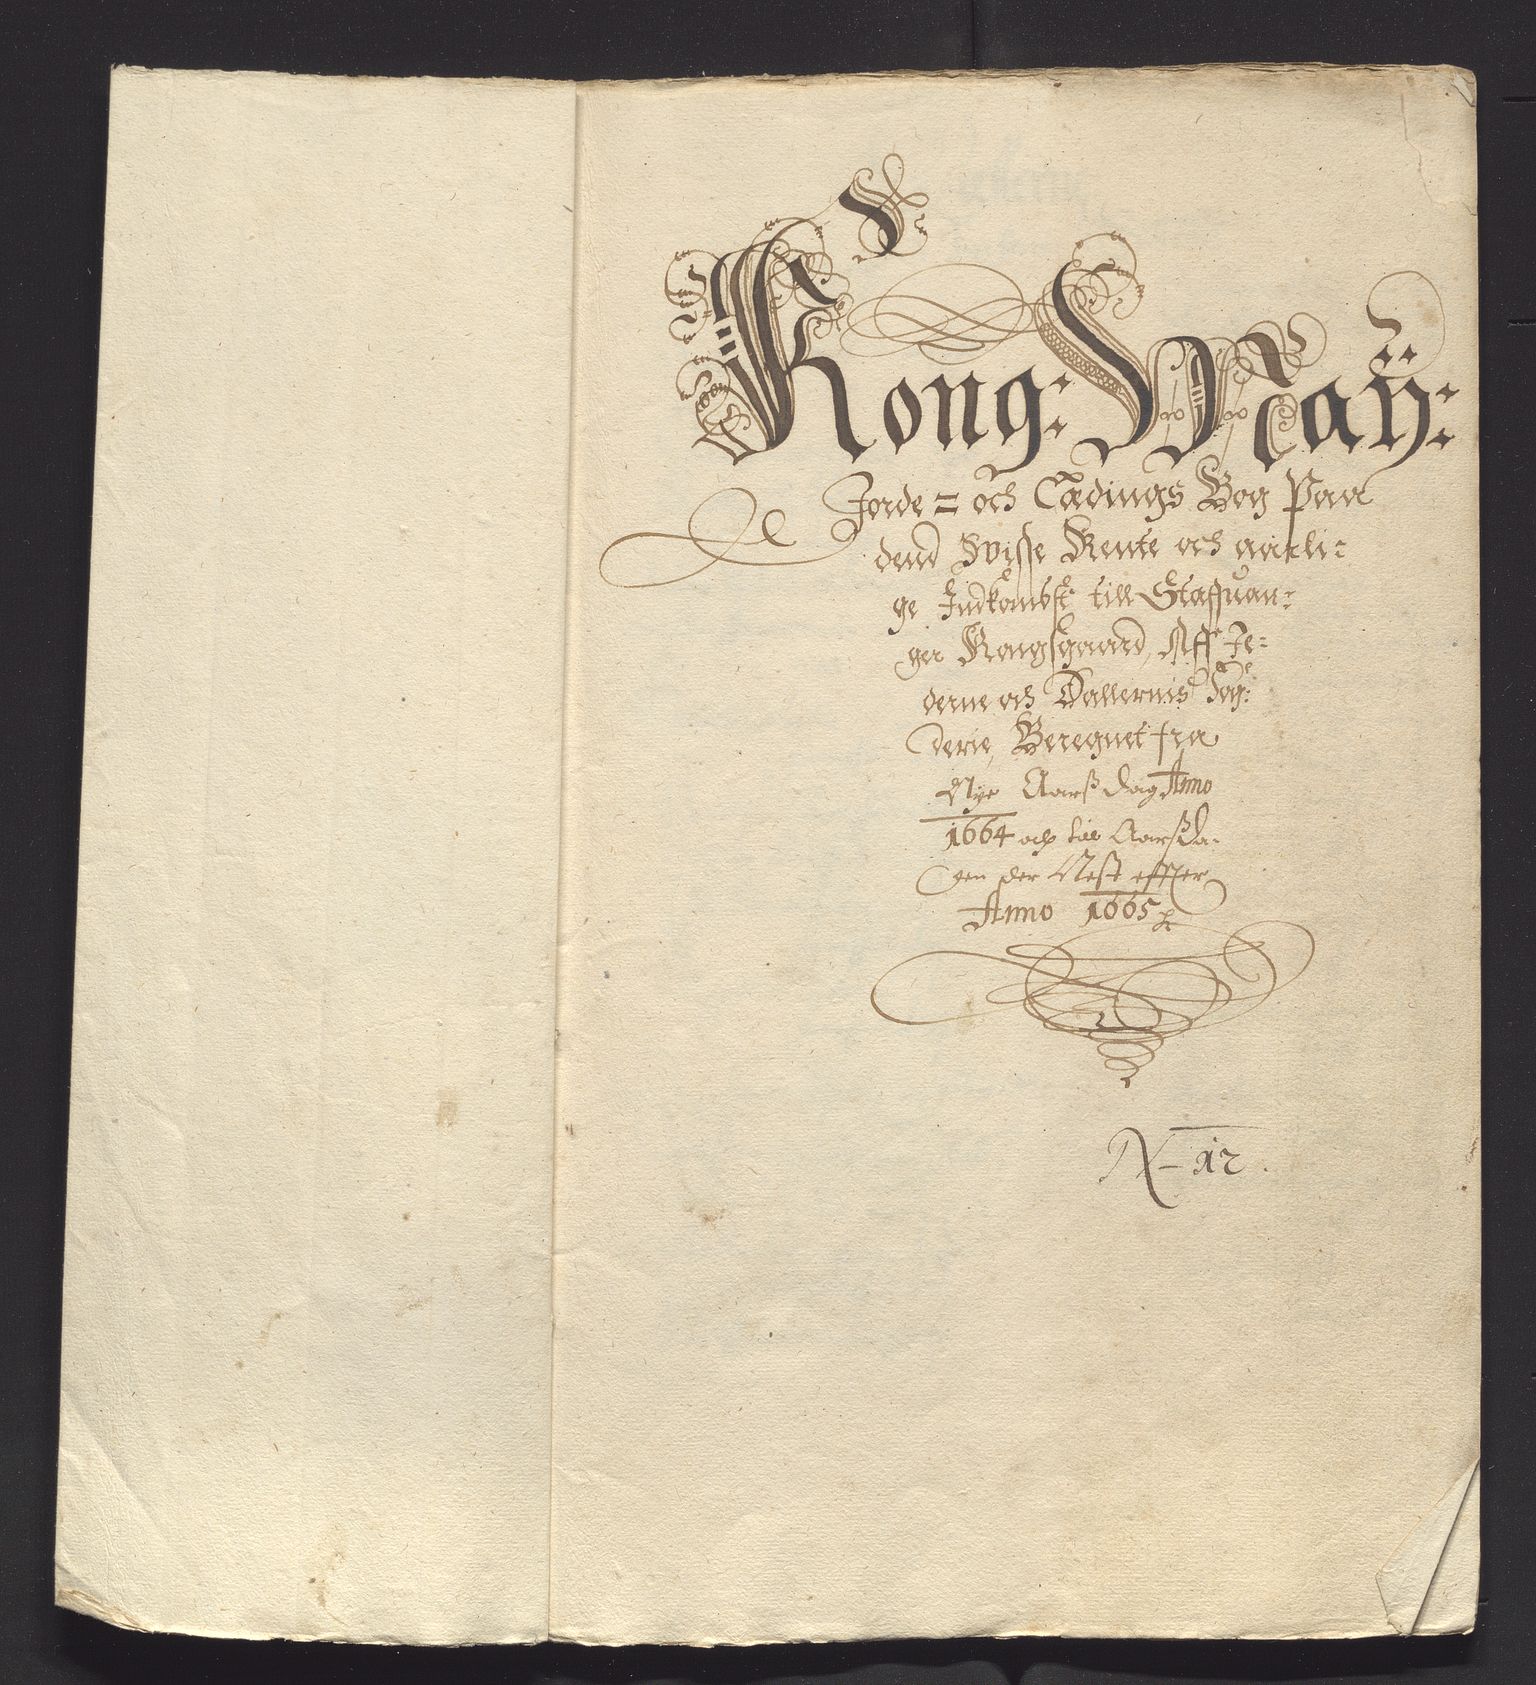 Kong: May:
Jorde= och Lædings Bog Paa
dend Wisse Rente och aarli:
ge Indkombst till Staffuan:
ger Kongsgaard, Aff Je:
derne och Dallernis Fog:
derie, Beregnet fra
Nye Aarß dag Anno
1664 och til Aarßda:
gen der Nest effter
Anno 1665
N 12.